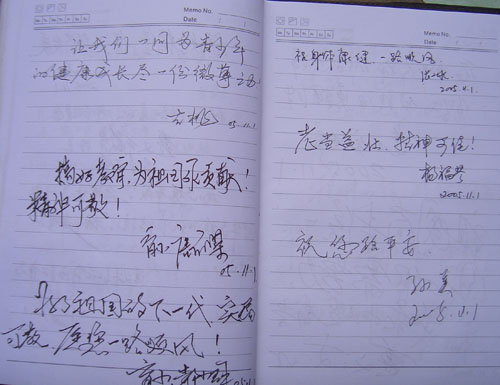 Memo No.
Date / /
让我们一同为青少年
的健康成长尽一份微薄之力
05.11.1
搞好教育,为祖国承贡献!
精神可敬!
05.11.1
为祖国的下一代
可敬,愿您一路顺风!
Memo No.
Date / /
祝身体康健 一路顺风
2005.11.1
老当益壮,精神可佳!
杨福琴
2005.11.1
祝您路平安
孙美
2005.11.1